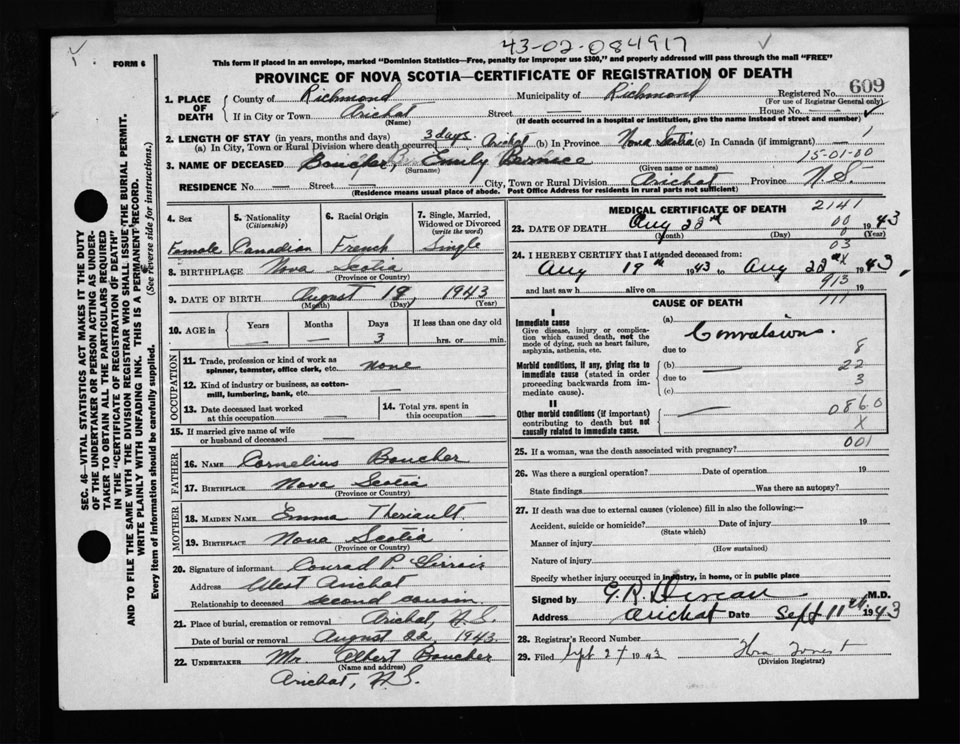 43-02-084917
FORM 6
This form if placed in an envelope, marked "Dominion Statistics—Free, penalty for improper use $300," and properly addressed will pass through the mail "FREE"
PROVINCE OF NOVA SCOTIA—CERTIFICATE OF REGISTRATION OF DEATH
609
1. PLACE OF DEATH
County of Richmond Municipality of Richmond Registered No.
(For use of Registrar General only)
If in City or Town Arichat Street House No.
(Name) (If death occurred in a hospital or institution, give the name instead of street and number)
2. LENGTH OF STAY (in years, months and days)
(a) In City, Town or Rural Division where death occurred 3 days. Arichat (b) In Province Nova Scotia (c) In Canada (if immigrant) —
15-01-00
3. NAME OF DECEASED Boucher, Emily Bernice
(Surname) (Given name or names)
RESIDENCE No. — Street — City, Town or Rural Division Arichat Province N.S.
(Residence means usual place of abode. Post Office Address for residents in rural parts not sufficient)
4. Sex
Female
5. Nationality
(Citizenship)
Canadian
6. Racial Origin
French
7. Single, Married, Widowed or Divorced
(write the word)
Single
8. BIRTHPLACE Nova Scotia
(Province or Country)
9. DATE OF BIRTH August 19 1943
(Month) (Day) (Year)
10. AGE in
Years Months Days If less than one day old
— — 3 hrs. or min.
OCCUPATION
11. Trade, profession or kind of work as spinner, teamster, office clerk, etc. None
12. Kind of industry or business, as cotton-mill, lumbering, bank, etc. —
13. Date deceased last worked at this occupation —
14. Total yrs. spent in this occupation —
15. If married give name of wife or husband of deceased —
FATHER
16. NAME Cornelius Boucher
17. BIRTHPLACE Nova Scotia
(Province or Country)
MOTHER
18. MAIDEN NAME Emma Theriault
19. BIRTHPLACE Nova Scotia
(Province or Country)
20. Signature of informant Conrad P. Girroir
Address West Arichat
Relationship to deceased second cousin
21. Place of burial, cremation or removal Arichat, N.S.
Date of burial or removal August 22, 1943
22. UNDERTAKER Mr. Albert Boucher
(Name and address)
Arichat, N.S.
MEDICAL CERTIFICATE OF DEATH 2141
23. DATE OF DEATH Aug 22nd 00 1943
(Month) (Day) (Year)
03
24. I HEREBY CERTIFY that I attended deceased from:
Aug 19th 1943 to Aug 22nd 1943
913
and last saw h alive on 19
111
CAUSE OF DEATH
I
Immediate cause
Give disease, injury or complication which caused death, not the mode of dying, such as heart failure, asphyxia, asthenia, etc.
(a) Convulsions.
due to 8
Morbid conditions, if any, giving rise to immediate cause (stated in order proceeding backwards from immediate cause)
(b) — 22
due to 3
(c)
II
Other morbid conditions (if important) contributing to death but not causally related to immediate cause.
— 0860
X
001
25. If a woman, was the death associated with pregnancy?
26. Was there a surgical operation? Date of operation 19
State findings Was there an autopsy?
27. If death was due to external causes (violence) fill in also the following:—
Accident, suicide or homicide? Date of injury 19
(State which)
Manner of injury
(How sustained)
Nature of injury
Specify whether injury occurred in industry, in home, or in public place
Signed by G. R. M.D.
Address Arichat Date Sept 11th 1943
28. Registrar's Record Number
29. Filed Sept 27 1943
(Division Registrar)
SEC. 46—VITAL STATISTICS ACT MAKES IT THE DUTY
OF THE UNDERTAKER OR PERSON ACTING AS UNDER-
TAKER TO OBTAIN ALL THE PARTICULARS REQUIRED
IN THE "CERTIFICATE OF REGISTRATION OF DEATH"
AND TO FILE THE SAME WITH THE DIVISION REGISTRAR WHO SHALL ISSUE THE BURIAL PERMIT.
WRITE PLAINLY WITH UNFADING INK. THIS IS A PERMANENT RECORD.
Every item of information should be carefully supplied. (See reverse side for instructions.)